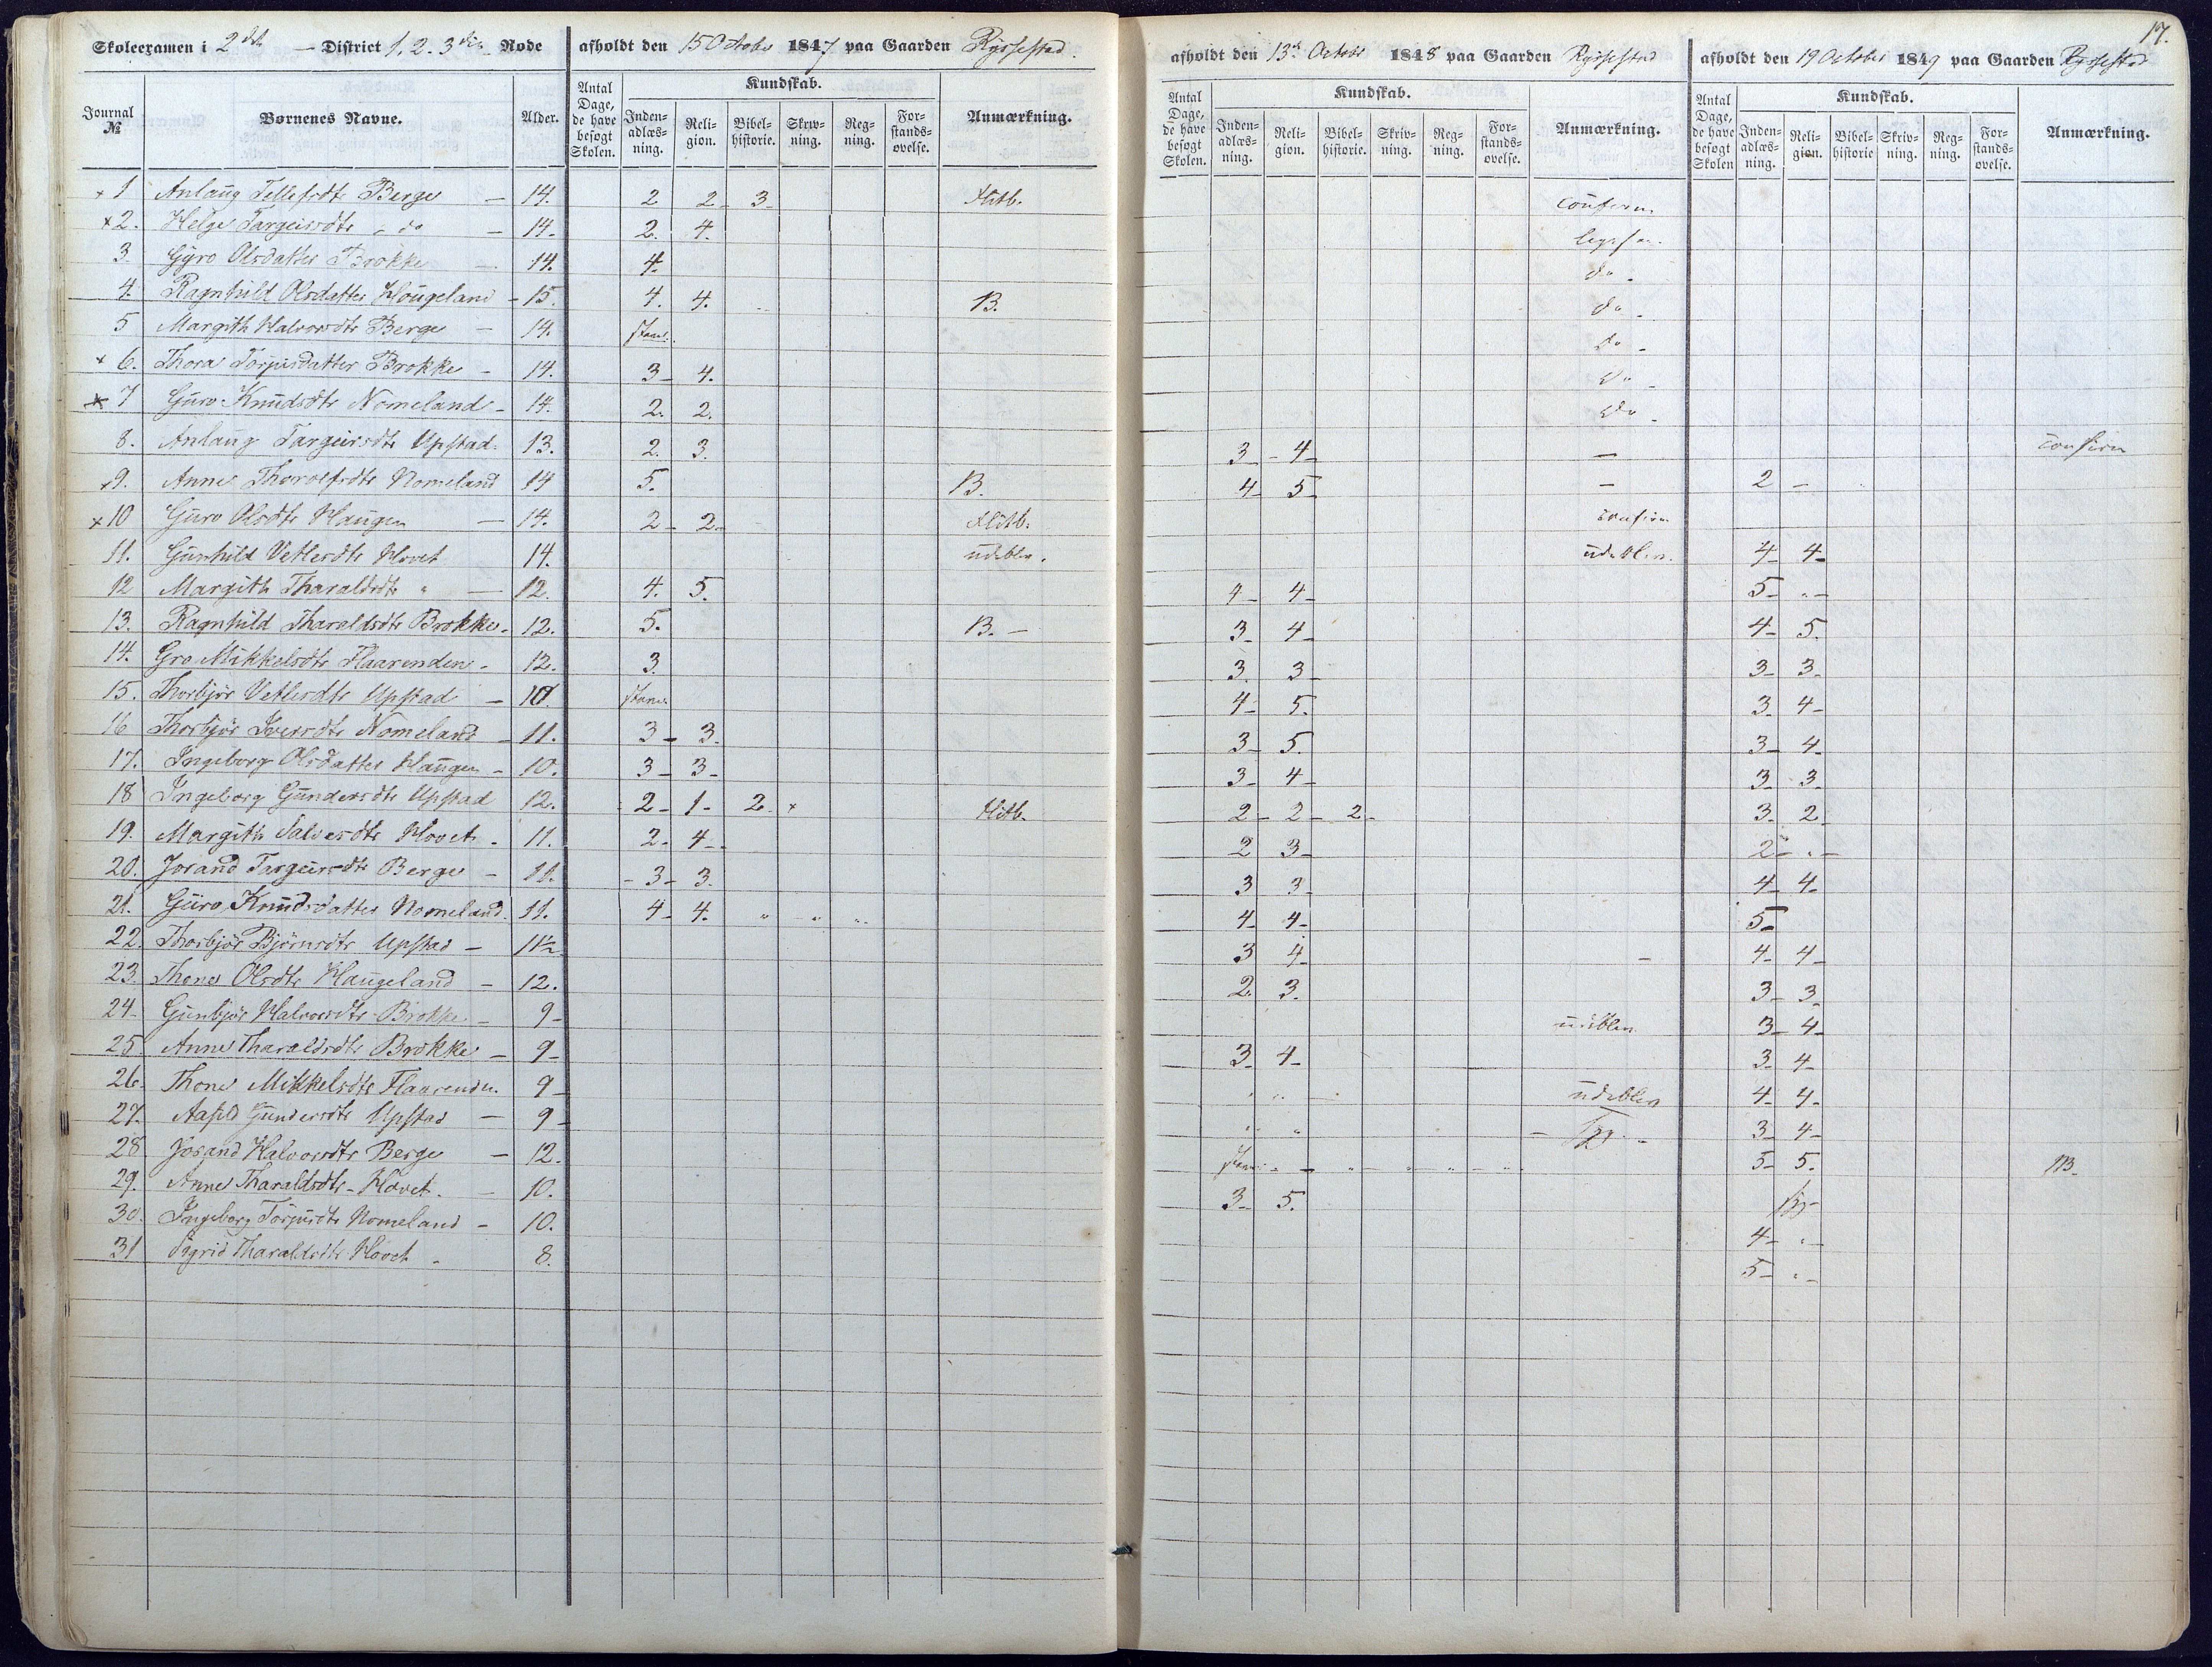 17.
Skoleexamen i 2det – District 1. 2. 3die Rode afholdt den 15 October 1847 paa Gaarden Ryssestad.
afholdt den 13de Octobr 1848 paa Gaarden Ryssestad
afholdt den 19 October 1849 paa Gaarden Ryssestad
Journal № Børnenes Navne. Alder. Antal Dage, de have besøgt Skolen. Kundskab. Inden-adlæs-ning. Reli-gion. Bibel-historie. Skriv-ning. Reg-ning. For-stands-øvelse. Anmærkning.
Antal Dage, de have besøgt Skolen. Kundskab. Inden-adlæs-ning. Reli-gion. Bibel-historie. Skriv-ning. Reg-ning. For-stands-øvelse. Anmærkning.
Antal Dage, de have besøgt Skolen Kundskab. Inden-adlæs-ning. Reli-gion. Bibel-historie Skriv-ning. Reg-ning. For-stands-øvelse. Anmærkning.
x 1 Anlaug Tellefsdtr Berge – 14. 2 2 – 3 – Flitb. confirm.
x 2. Helge Targeirsdtr " do – 14 – 2. 4.
3. Gyro Olsdatter Brokke – 14. 4. do –
4. Ragnhild Olsdatter Hougeland – 15. 4. 4. B. do –
5 Margith Halvorsdtr Berge – 14. stav. do –
x 6. Thora Torjusdatter Brokke – 14. 3 – 4. do –
x 7 Guro Knudsdtr Nomeland – 14. 2. 2. do –
8. Anlaug Targeirsdtr Upstad. 13. 2. 3. 3 – 4 – – confirm
x 9. Anne Thorolfsdtr Nomeland 14 5. B. 4 – 5 – – 2 –
x 10 Guro Olsdtr Haugen – 14. 2 – 2 – Flitb. confirm
11. Gunhild Vetlesdtr Hovet 14. udeblev. udeblev. 4 – 4 –
12 Margith Tharaldsdtr " – 12. 4. 5. 4 – 4 – 5 – " –
13. Ragnhild Tharaldsdtr Brokke – 12. 5. B. – 3 – 4 – 4 – 5.
14. Gro Mikkelsdtr Flaarenden – 12. 3. 3. 3 – 3 – 3 –
15. Thorbjør Vetlesdtr Upstad – 10. stav. 4 – 5. 3 – 4 –
16 Thorbjør Sversdtr Nomeland – 11. 3 – 3. 3 – 5. 3 – 4 –
17. Ingeborg Olsdatter Haugen – 10. 3 – 3 – 3 – 4 – 3 – 3 –
18 Ingeborg Gundersdtr Upstad 12. 2 – 1 – 2 – x Flitb. 2 – 2 – 2 – 3 – 2 –
19. Margith Salvesdtr Hovet – 11. 2 – 4 – 2 3 – 2 – " –
20. Jorand Targeirsdtr Berge – 11. – 3 – 3. 3 3 – 4 – 4 –
21. Guro Knudsdatter Nomeland. 11. 4 – 4. " " " 4 – 4 – 5 –
22. Thorbjør Bjørnsdtr Upstad – 11½ 3 4 – – 4 – 4 –
23. Thone Olsdtr Haugeland – 12. 2. 3. 3 – 3 –
24 – Gunbjør Halvorsdtr Brokke – 9 – udeblev 3 – 4 –
25 Anne Tharaldsdtr Brokke – 9 – 3 – 4 – 3 – 4 –
26. Thone Mikkelsdtr Flaarenden. 9 – udeblev 4 – 4 –
27. Aasild Gundersdtr Upstad – 9 – 3 – 4 –
28 Jorand Halvorsdtr Berge – 12. stav. 5 – 5. B.
29. Anne Tharaldsdtr – Hovet. – 10. 3 – 5.
30. Ingeborg Torjusdtr Nomeland – 10. 4 – " –
31 Sigrid Tharaldsdtr Hovet – 8. 5 – " –